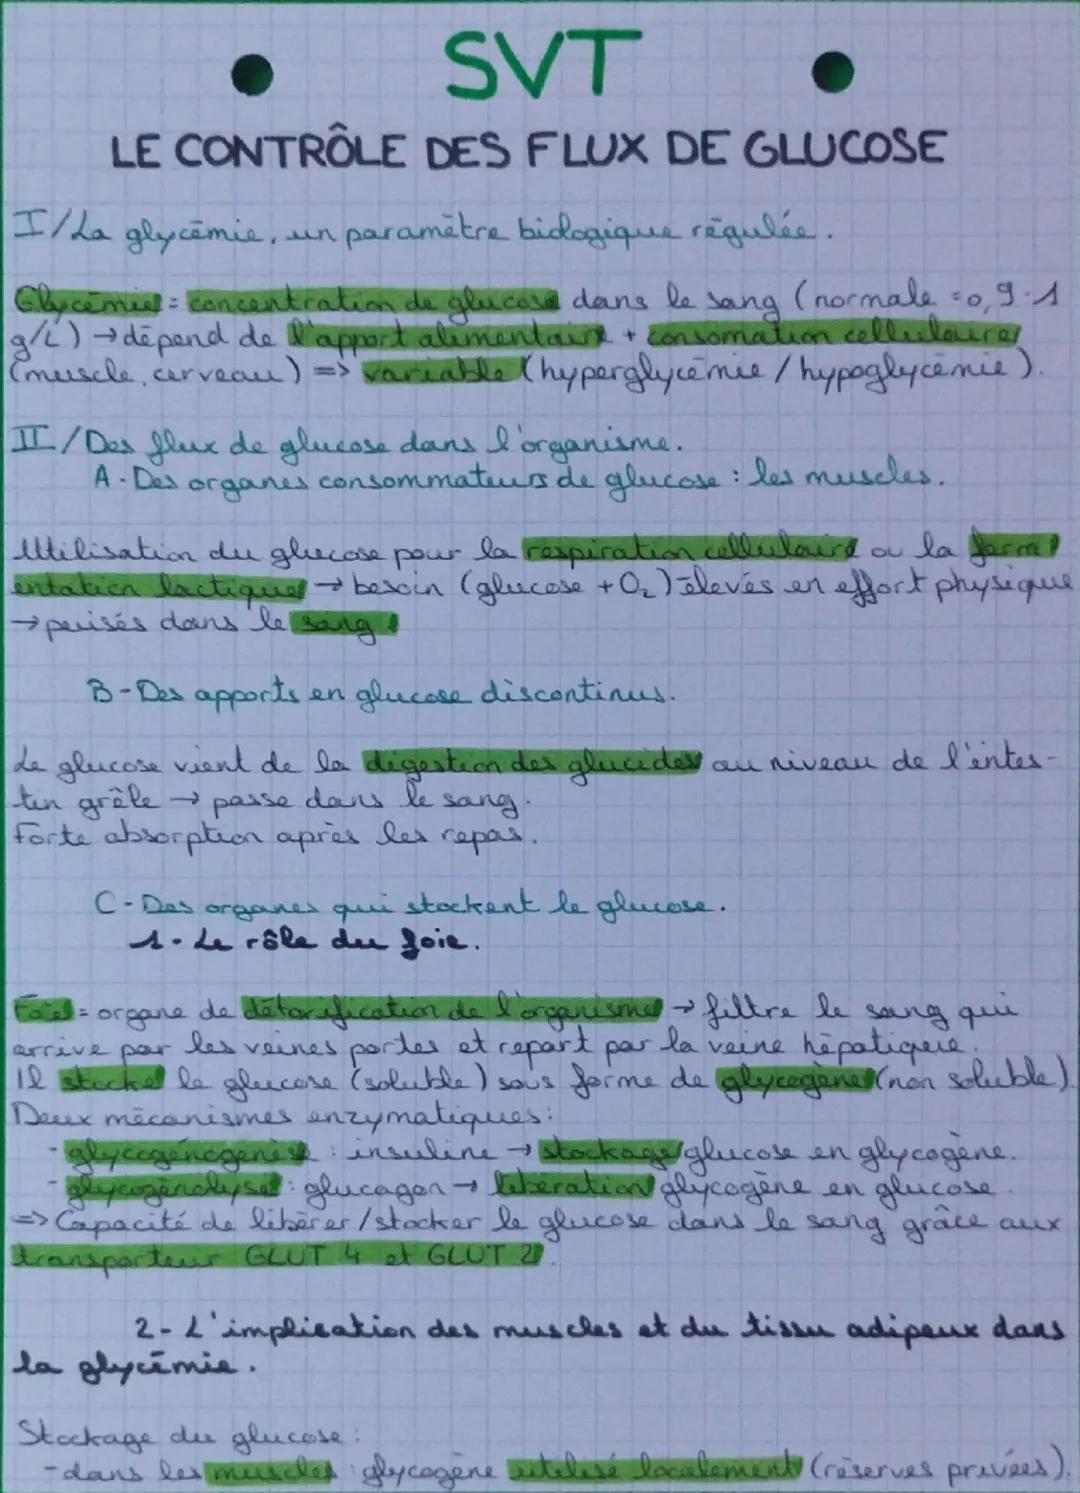 SVT
LE CONTRÔLE DES FLUX DE GLUCOSE
I/La glycémie, un paramètre biologique régulée.
Glycémie = concentration de glucose dans le sang (normale = 0,9-1
g/L) → dépend de l'apport alimentaire + consomation cellulaire
(muscle, cerveau) => variable (hyperglycémie / hypoglycémie).
II/Des flux de glucose dans l'organisme.
A-Des organes consommateurs de glucose : les muscles.
Utilisation du glucose pour la respiration cellulaire ou la ferm
entation lactique → besoin (glucose + O₂) élevés en effort physique
→ puisés dans le sang
B-Des apports en glucose discontinus.
Le glucose vient de la digestion des glucides au niveau de l'intes-
tin grêle → passe dans le sang.
Forte absorption après les repas.
C-Des organes qui stockent le glucose.
1-Le rôle du foie.
Foie = organe de détoxification de l'organisme → filtre le sang qui
arrive par les veines portes et repart par la veine hépatique.
Il stocke le glucose (soluble) sous forme de glycogène (non soluble).
Deux mécanismes enzymatiques :
- glycogénogenèse : insuline → stockage glucose en glycogène.
- glycogénolyse : glucagon → libération glycogène en glucose.
=> Capacité de libérer/stocker le glucose dans le sang grâce aux
transporteur GLUT 4 et GLUT 2.
2-L'implication des muscles et du tissu adipeux dans
la glycémie.
Stockage du glucose :
- dans les muscles : glycogène utilisé localement (réserves privées).